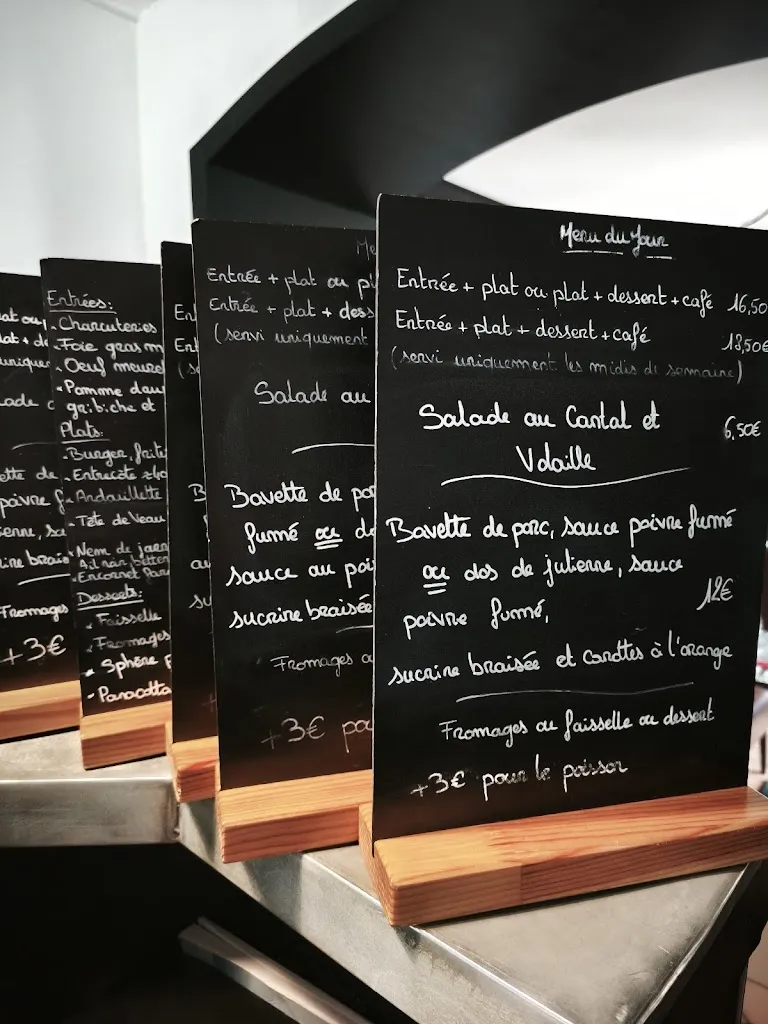 Menu du Jour
Entrée + plat ou plat + dessert + café 16,50
Entrée + plat + dessert + café 18,50€
(servi uniquement les midis de semaine)
Salade au Cantal et 6,50€
Volaille
Bavette de porc, sauce poivre fumé
ou dos de julienne, sauce
poivre fumé, 12€
sucrine braisée et carottes à l'orange
Fromages ou faisselle ou dessert
+3€ pour le poisson
Me
Entrée + plat ou pl
Entrée + plat + dess
(servi uniquement
Salade au
Bavette de por
fumé ou do
sauce au poi
sucrine braisée
Fromages o
+3€ po
En
Ent
(s
B
au
su
Entrées:
- Charcuteries
- Foie gras m
- Oeuf meure
- Pomme dau
gribiche et
Plats:
- Burger, frite
- Entrecôte
- Andouillette
- Tête de Veau
- Encornet
Desserts:
- Faisselle
- Fromages
- Sphère
- Panacotta
lat ou p
lat + de
unique
lade
ette de
poivre f
ine brais
Fromages
+3€